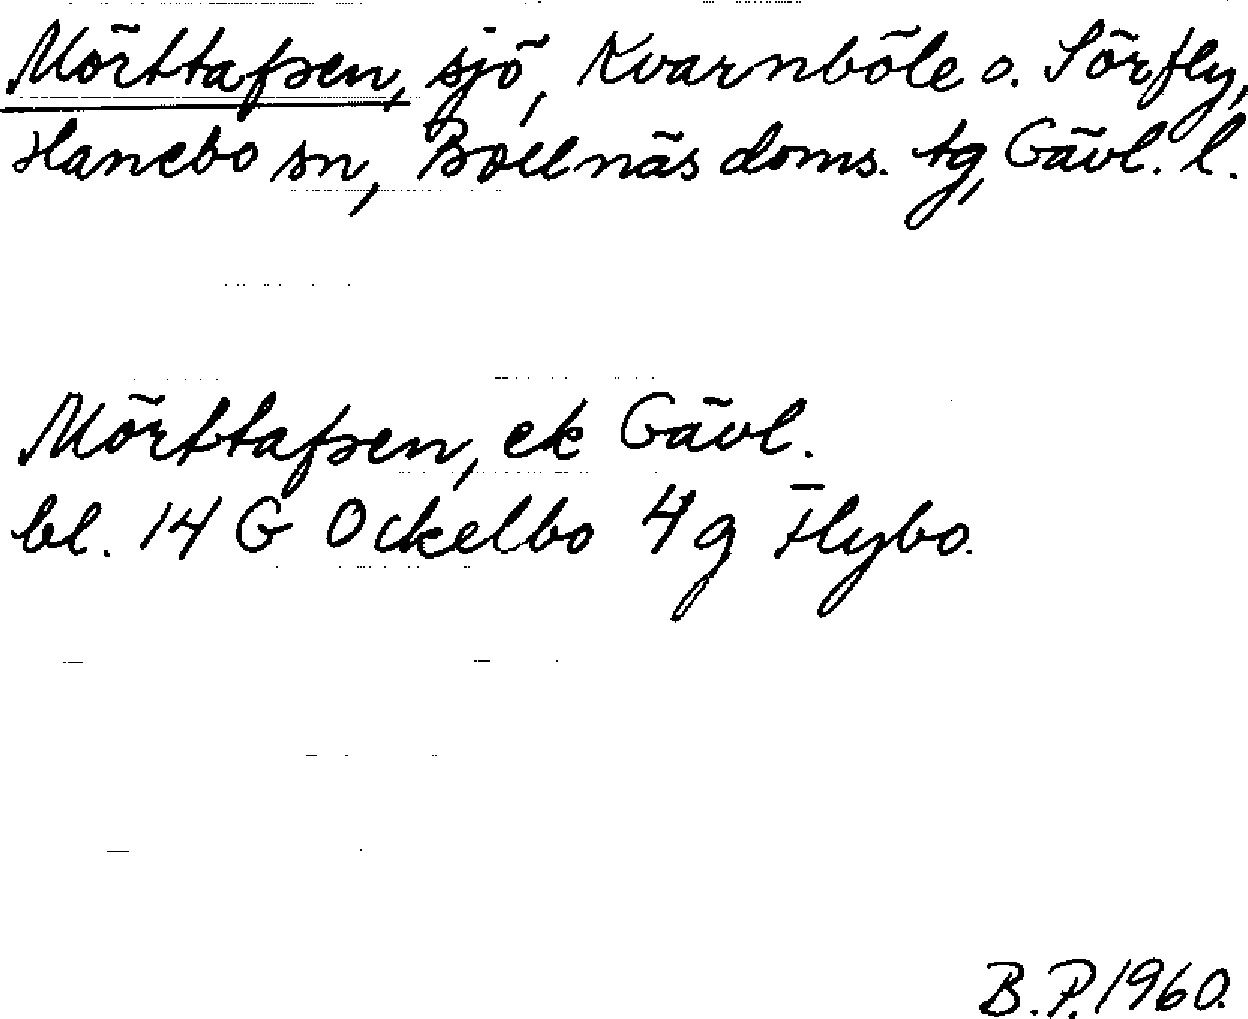 Mörttapsen, sjö, Kvarnböle o. Sörfly,
Hanebo sn, Bollnäs doms. tg, Gävl. l.
Mörttapsen, ek Gävl.
bl. 14 G Ockelbo 4 g Flybo.
B.P. 1960.